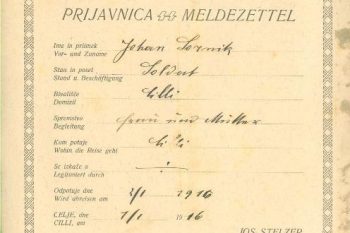 PRIJAVNICA MELDEZETTEL
Ime in priimek Johan
Vor- und Zuname
Stan in posel Soldat
Stand u. Beschäftigung
Bivališče Cilli
Domizil
Spremstvo Frau und Mutter
Begleitung
Kam potuje Cilli
Wohin die Reise geht
Se izkaže s ÷
Legitimiert durch
Odpotuje dne 2/1 1916
Wird abreisen am
CELJE, dne 1/1 1916
CILLI, am
JOS. STELZER